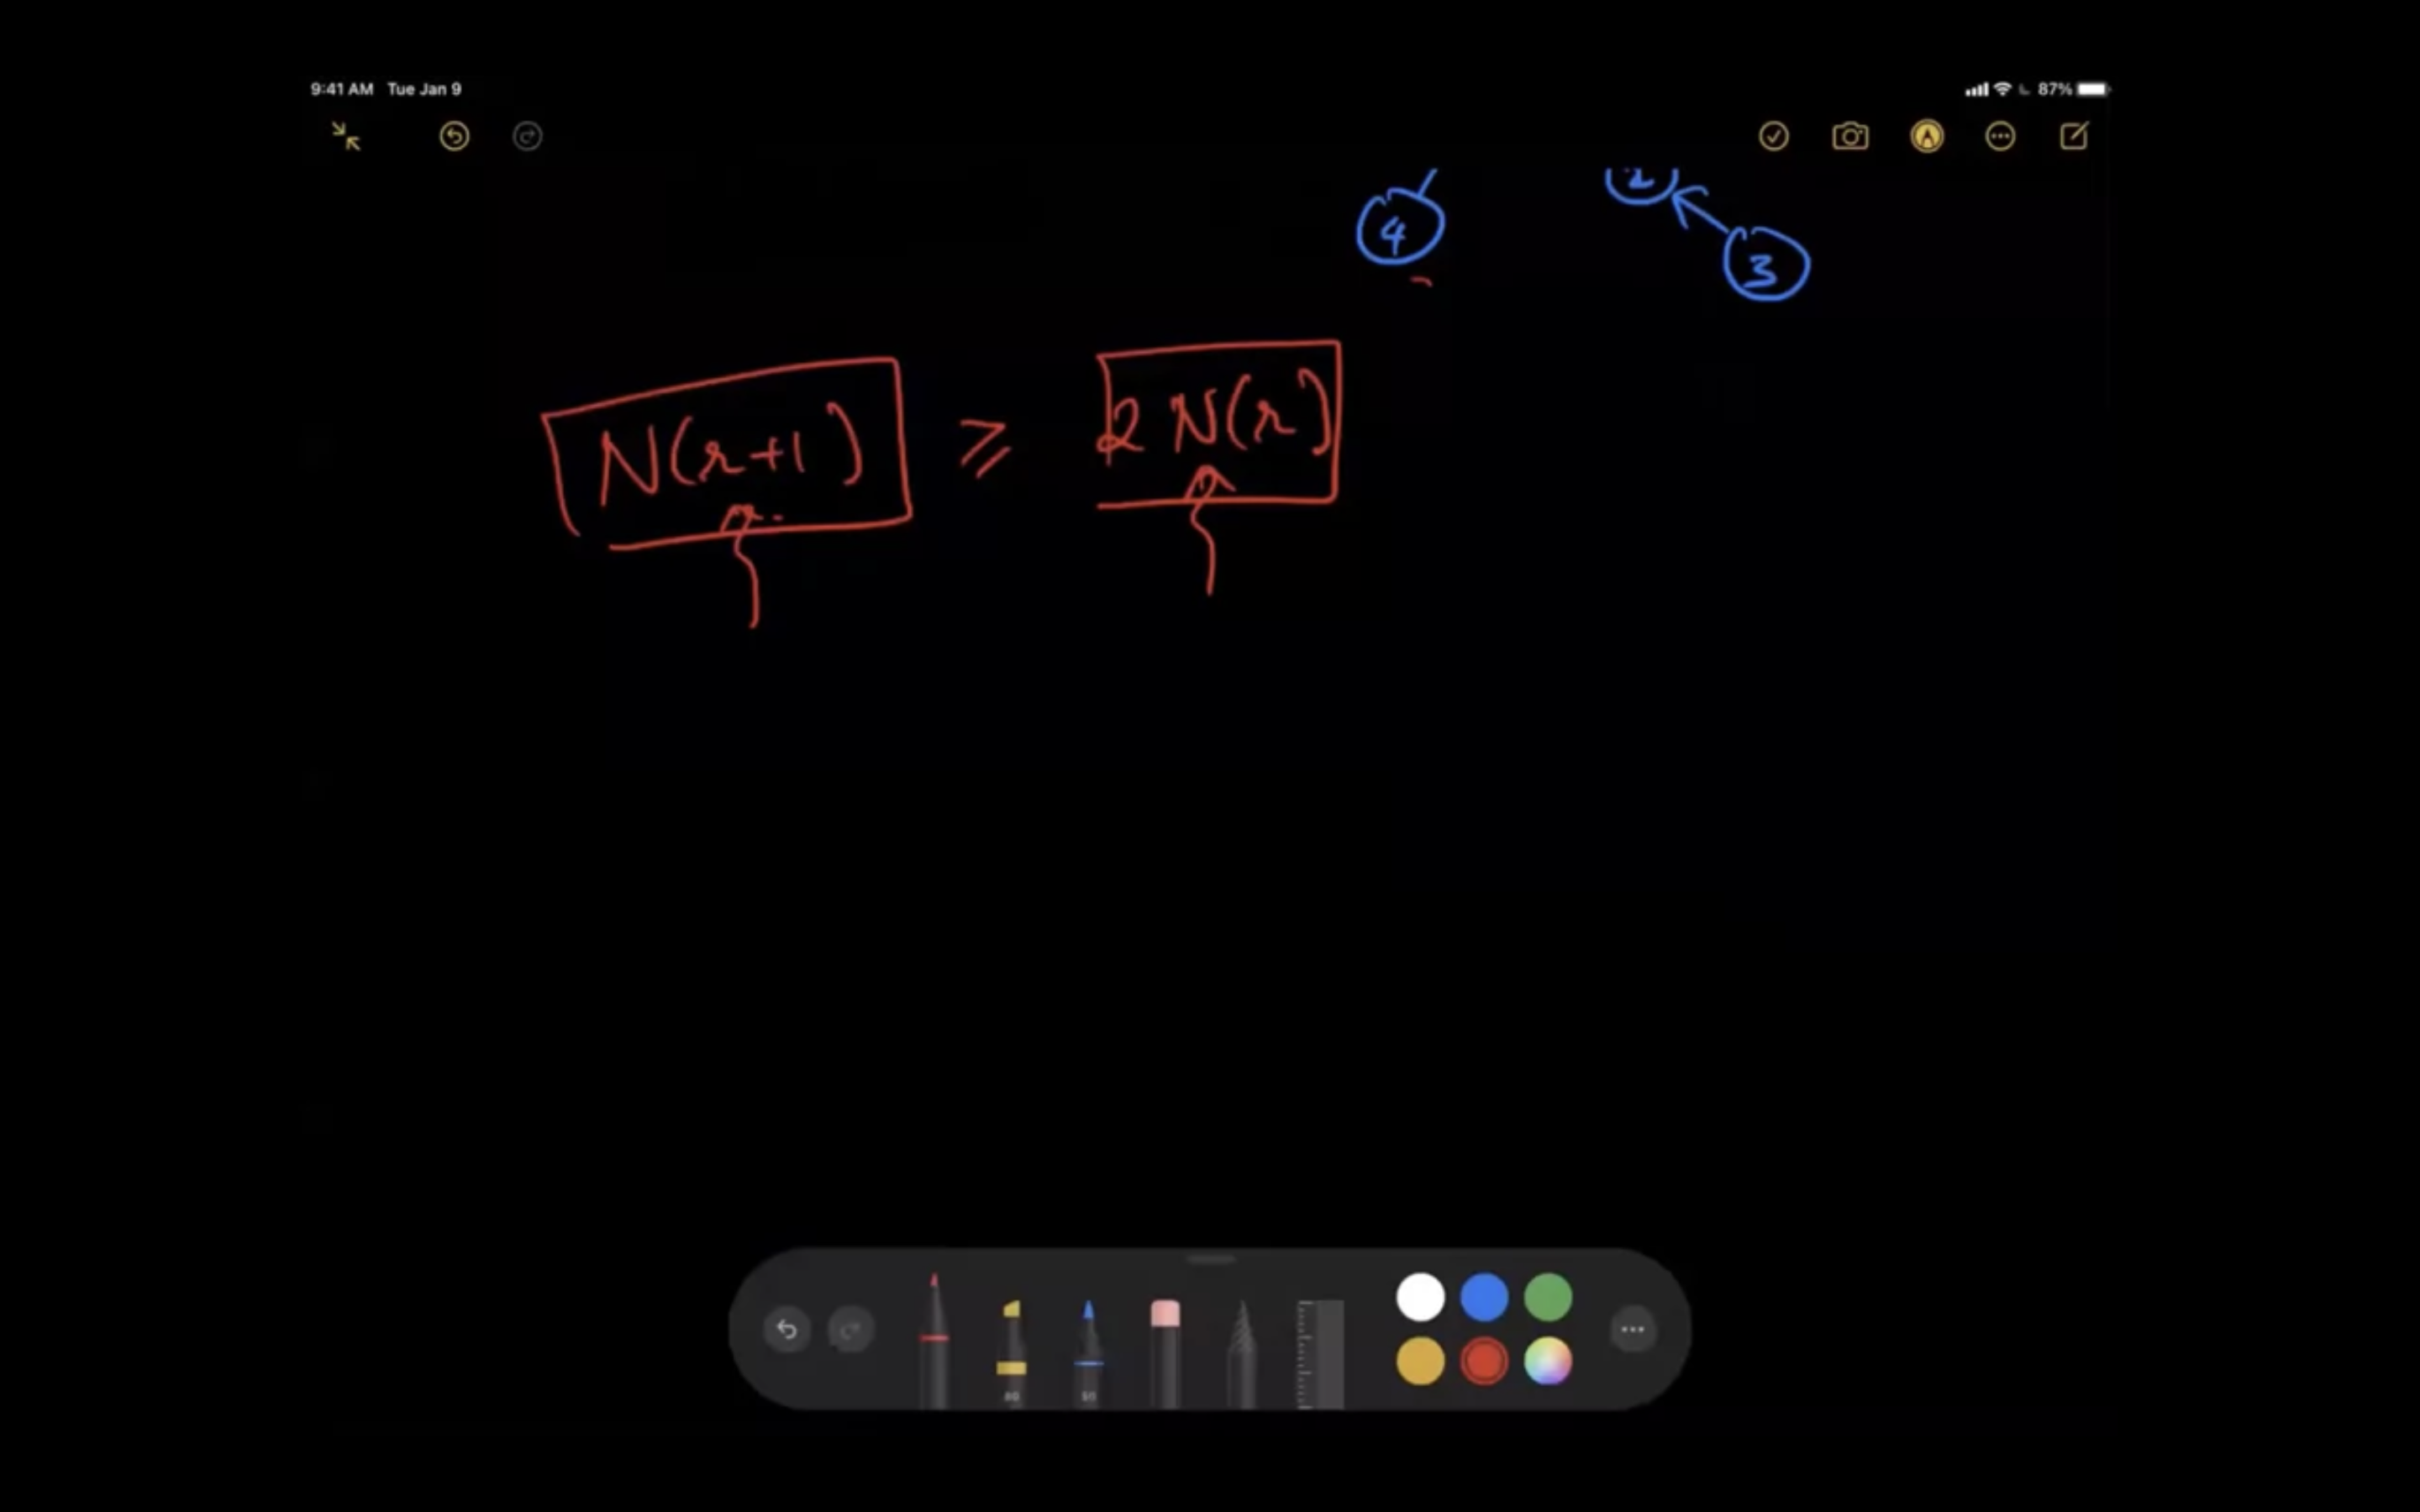 9:41 AM Tue Jan 9
87%
4
2
3
N(r+1) ≥ 2 N(r)
80
50